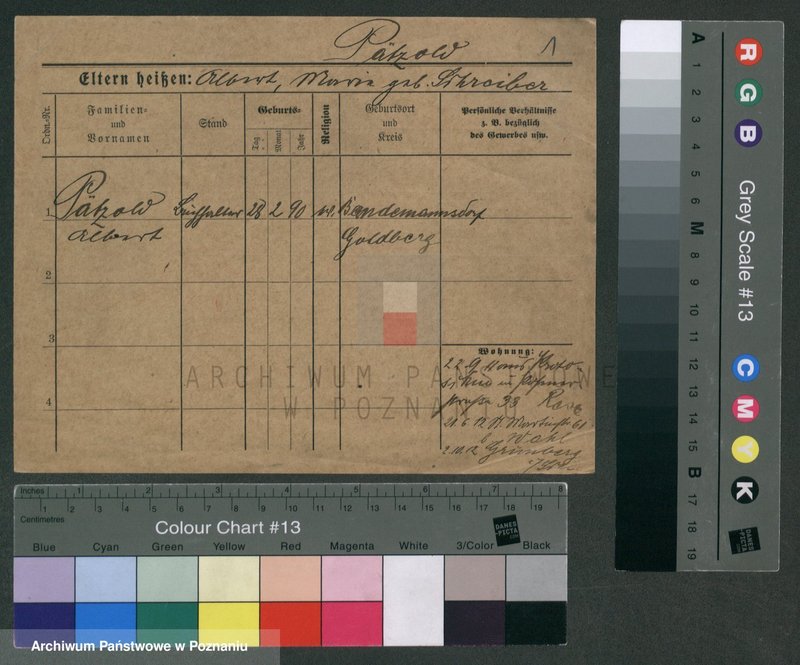 Pätzold
1
Eltern heißen: Albert, Marie geb. Schreiber
Ordn.-Nr.
Familien-
und
Vornamen
Stand
Geburts-
Tag
Monat
Jahr
Religion
Geburtsort
und
Kreis
Persönliche Verhältnisse
z. B. bezüglich
des Gewerbes usw.
1 Pätzold Buchhalter 28 2 90 Bandemannsdorf
Albert Goldberg
2
3
4
Wohnung:
22.9.
straße 33
21.6.12. St. Martinstr. 61
b. Wahl
2.10.12 Grünberg
ARCHIWUM PAŃSTWOWE
W POZNANIU
Inches 1 2 3 4 5 6 7 8
Centimetres 1 2 3 4 5 6 7 8 9 10 11 12 13 14 15 16 17 18 19
Colour Chart #13
DANES
-PICTA
.COM
Blue Cyan Green Yellow Red Magenta White 3/Color Black
A 1 2 3 4 5 6 M 8 9 10 11 12 13 14 15 B 17 18 19
R G B
Grey Scale #13
C M Y K
DANES
-PICTA
.COM
Archiwum Państwowe w Poznaniu